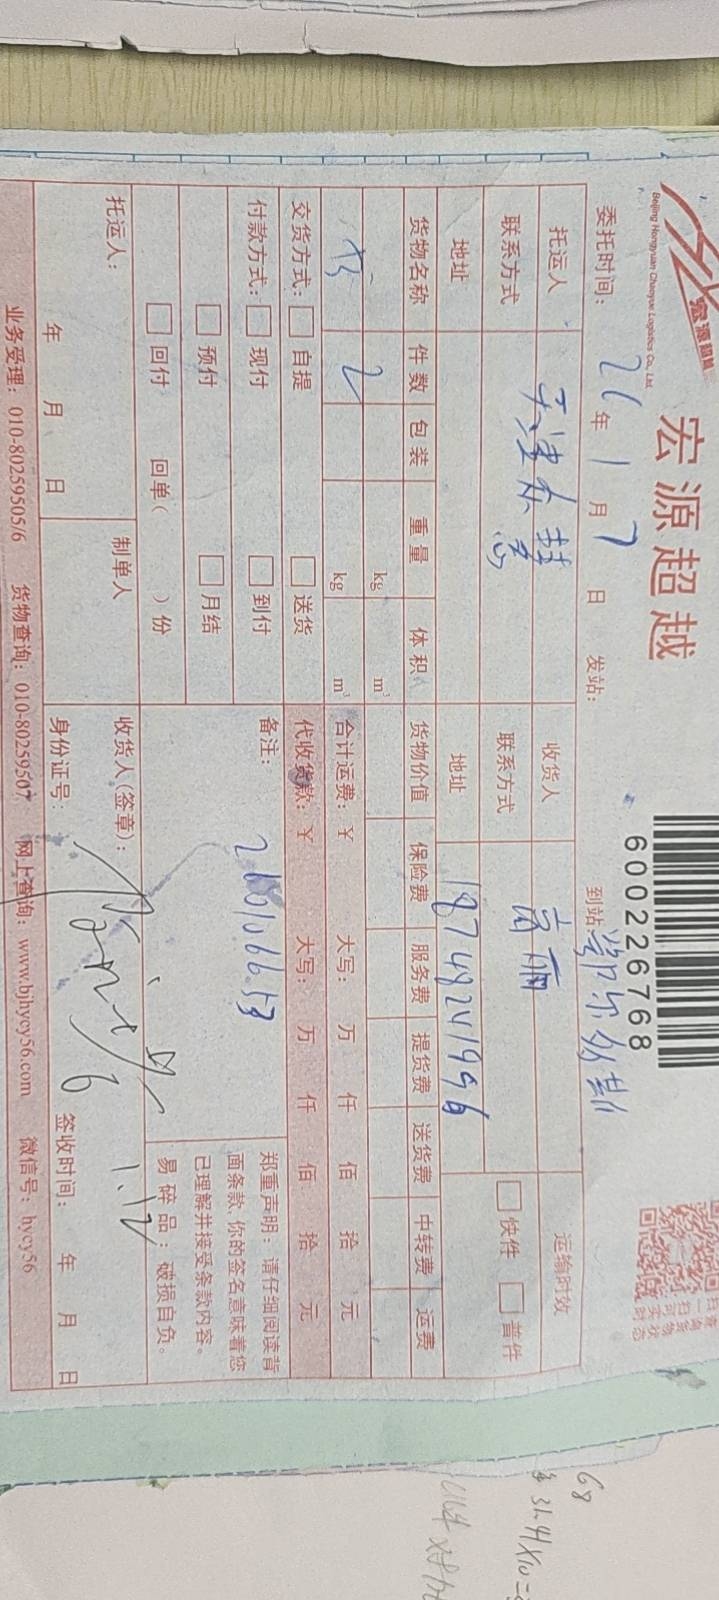 宏源超越
Beijing Hongyuan Chaoyue Logistics Co., Ltd.
宏源超越
600226768
委托时间: 26年1月7日 发站: 到站 鄂尔多斯
托运人 收货人 高丽 运输时效
联系方式 联系方式 快件 普件
地址 地址 18748241996
货物名称 件数 包装 重量 体积 货物价值 保险费 服务费 提货费 送货费 中转费 运费
kg m³
2 kg m³ 合计运费: ¥ 大写: 万 仟 佰 拾 元
交货方式: 自提 送货 代收货款: ¥ 大写: 万 仟 佰 拾 元
付款方式: 现付 到付 备注: 郑重声明: 请仔细阅读背
预付 月结 面条款, 你的签名意味着您
回付 回单( )份 已理解并接受条款内容。
易碎品: 破损自负。
托运人: 制单人 收货人(签章): 1.12
年 月 日 身份证号: 签收时间: 年 月 日
业务受理: 010-80259505/6 货物查询: 010-80259507 网上查询: www.bjhycy56.com 微信号: hycy56
68